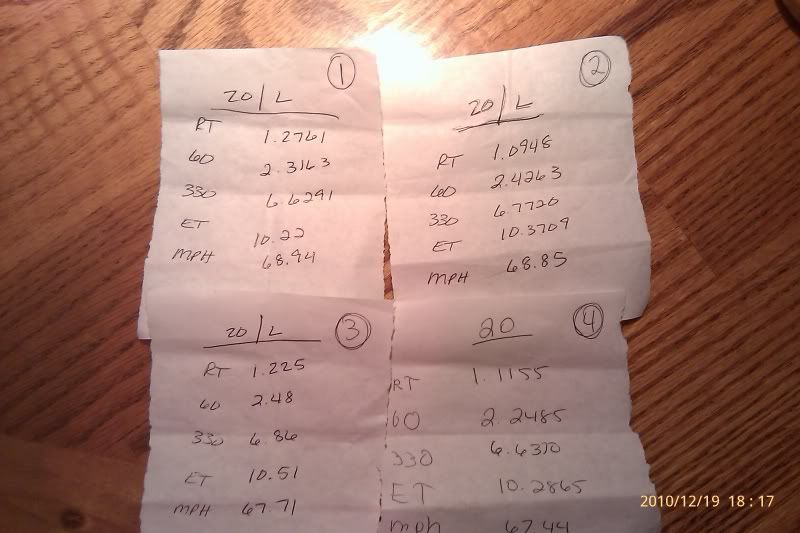 1
20 | L
RT 1.2761
60 2.3163
330 6.6291
ET 10.22
MPH 68.94
2
20 | L
RT 1.0948
60 2.4263
330 6.7720
ET 10.3709
MPH 68.85
3
20 | L
RT 1.225
60 2.48
330 6.86
ET 10.51
MPH 67.71
4
20
RT 1.1155
60 2.2485
330
ET 10.2865
mph 67.44
2010/12/19 18:17